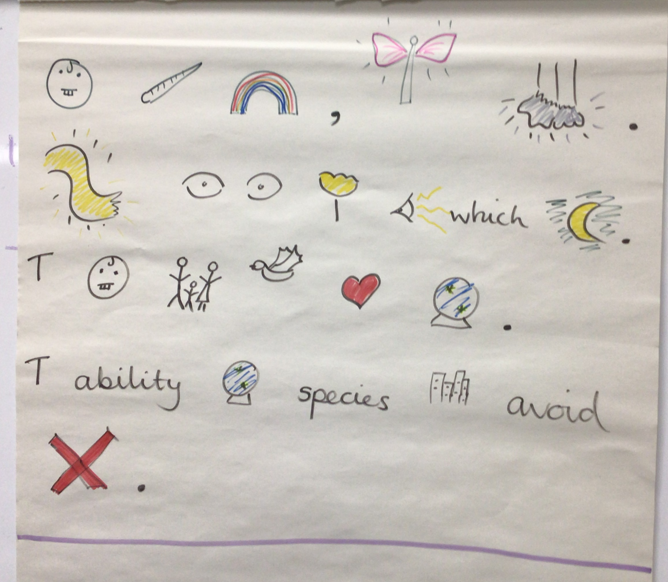 , .
which .
T .
T ability species avoid
.